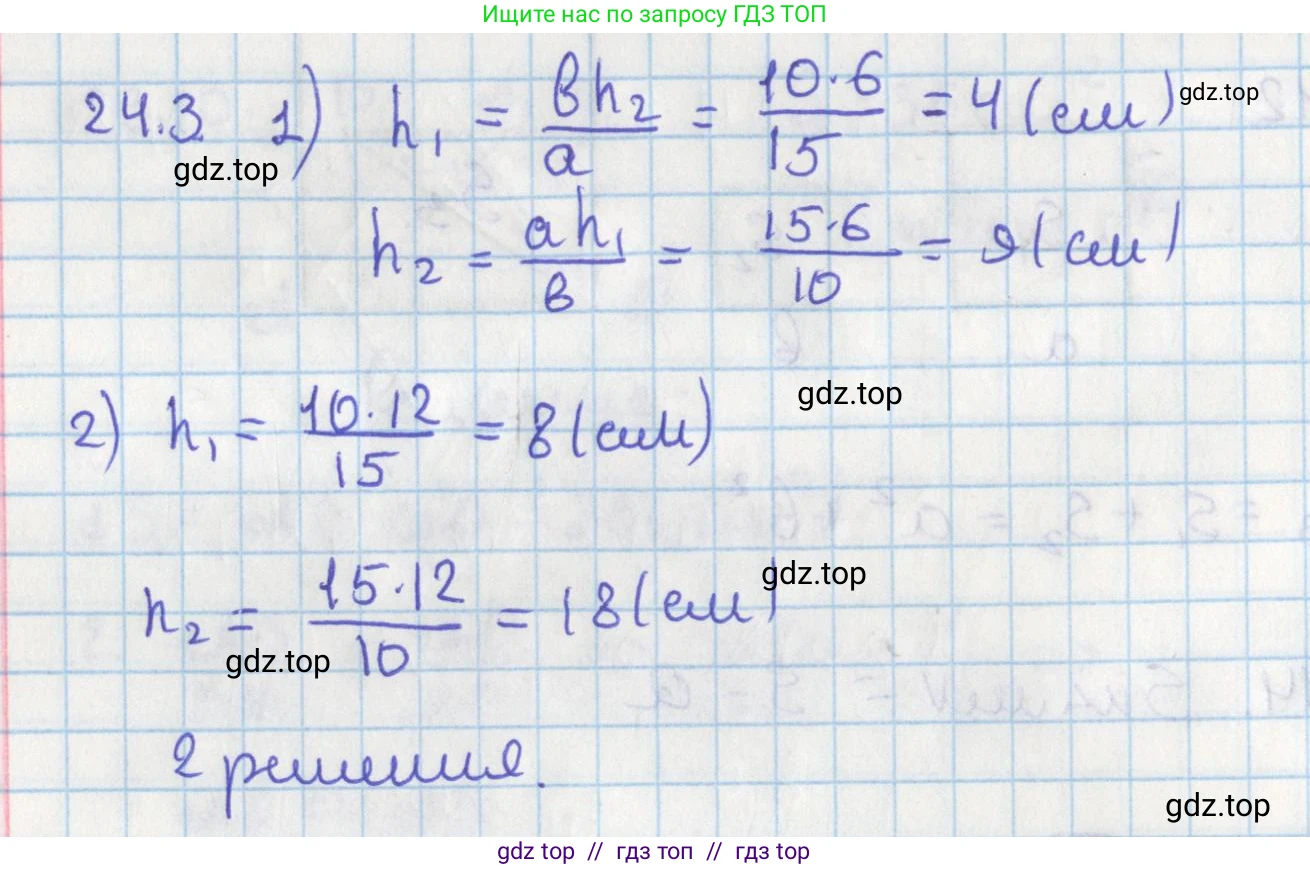 Ищите нас по запросу ГДЗ ТОП
24.3 1) h₁ = вh₂/a = 10·6/15 = 4 (см) gdz.top
gdz.top
h₂ = ah₁/в = 15·6/10 = 9 (см)
gdz.top
2) h₁ = 10·12/15 = 8 (см)
gdz.top
h₂ = 15·12/10 = 18 (см)
gdz.top
2 решения.
gdz.top
gdz top // гдз топ // gdz top